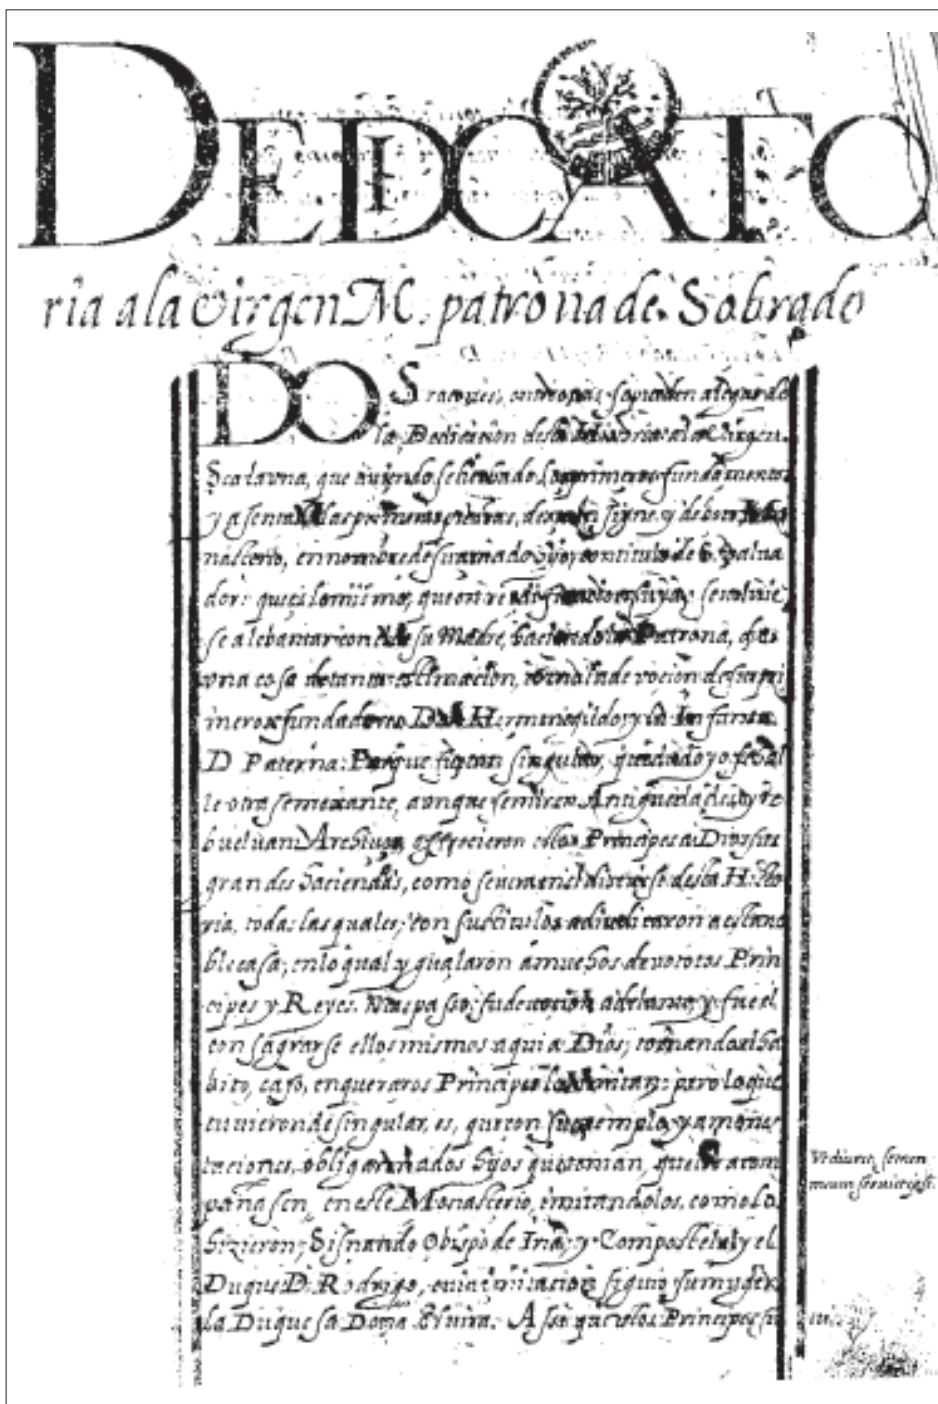 DEDICATO
ria a la Virgen M. patrona de Sobrado
DOS racones, entre otras, se pueden alegar de
la Dedicacion desta Historia a la Virgen.
Sea la vna, que auiendose hechado los primeros fundamentos
y asentado las primeras piedras, deste insigne y deboto Mo
nasterio, en nombre de su amado Hijo, con titulo de S. Salua
dor: que es lo mismo, que en reedificacion suya, se viniese
se a lebantar con el de su Madre, haciendola Patrona, que
vna cosa de tanta estimacion, como la deuocion de sus pri
meros fundadores Don Hermenegildo, y la Infanta
D Paterna: Porque fue tan singular, que dudo yo se hal
le otra semexante, aunque se miren Antiguedades, y re
bueluan Archiuos, offrecieron estos Principes a Dios sus
grandes haciendas, como se vera en el discurso desta Histo
ria, todas las quales, con sus titulos adiudicaron a esta no
ble casa; en lo qual ygualaron a muchos deuotos Prin
cipes y Reyes. Mas passo su deuocion adelante, y fue el
consagrarse ellos mismos aqui a Dios; tomando el ha
bito, caso, en que raros Principes los imitan: pero lo que
tuuieron de singular, es, que con su exemplo, y amones
taciones, obligaron a dos hijos que tenian, que los acom
pañasen, en este Monasterio, imitandolos, como lo
hizieron, Sisnando Obispo de Iria, y Compostela, y el
Duque D. Rodrigo, cuia imitacion siguio su muger
la Duquesa Doña Eluira. Asso que estos Principes